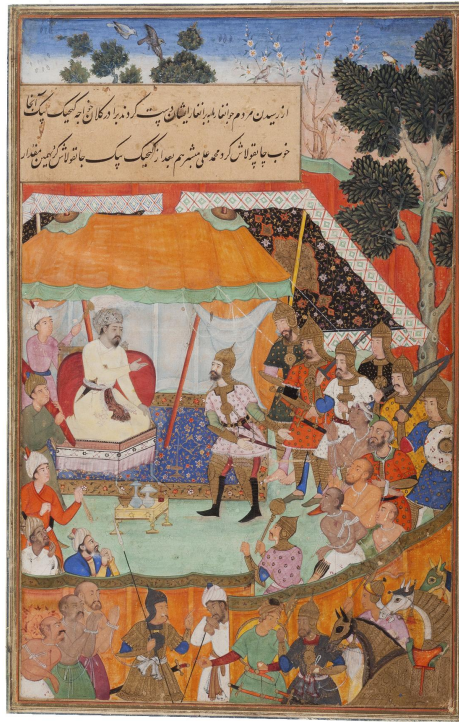 از رسیدن مردم جوانغار برانغار ایشان دست گردند برادر کلان خواجه کهجیک بیک آنجا
خوب چاپقولاش کرد محمد علی مبشر هم بعد از کهجیک بیک چاپقولاش کرد همین مقدار